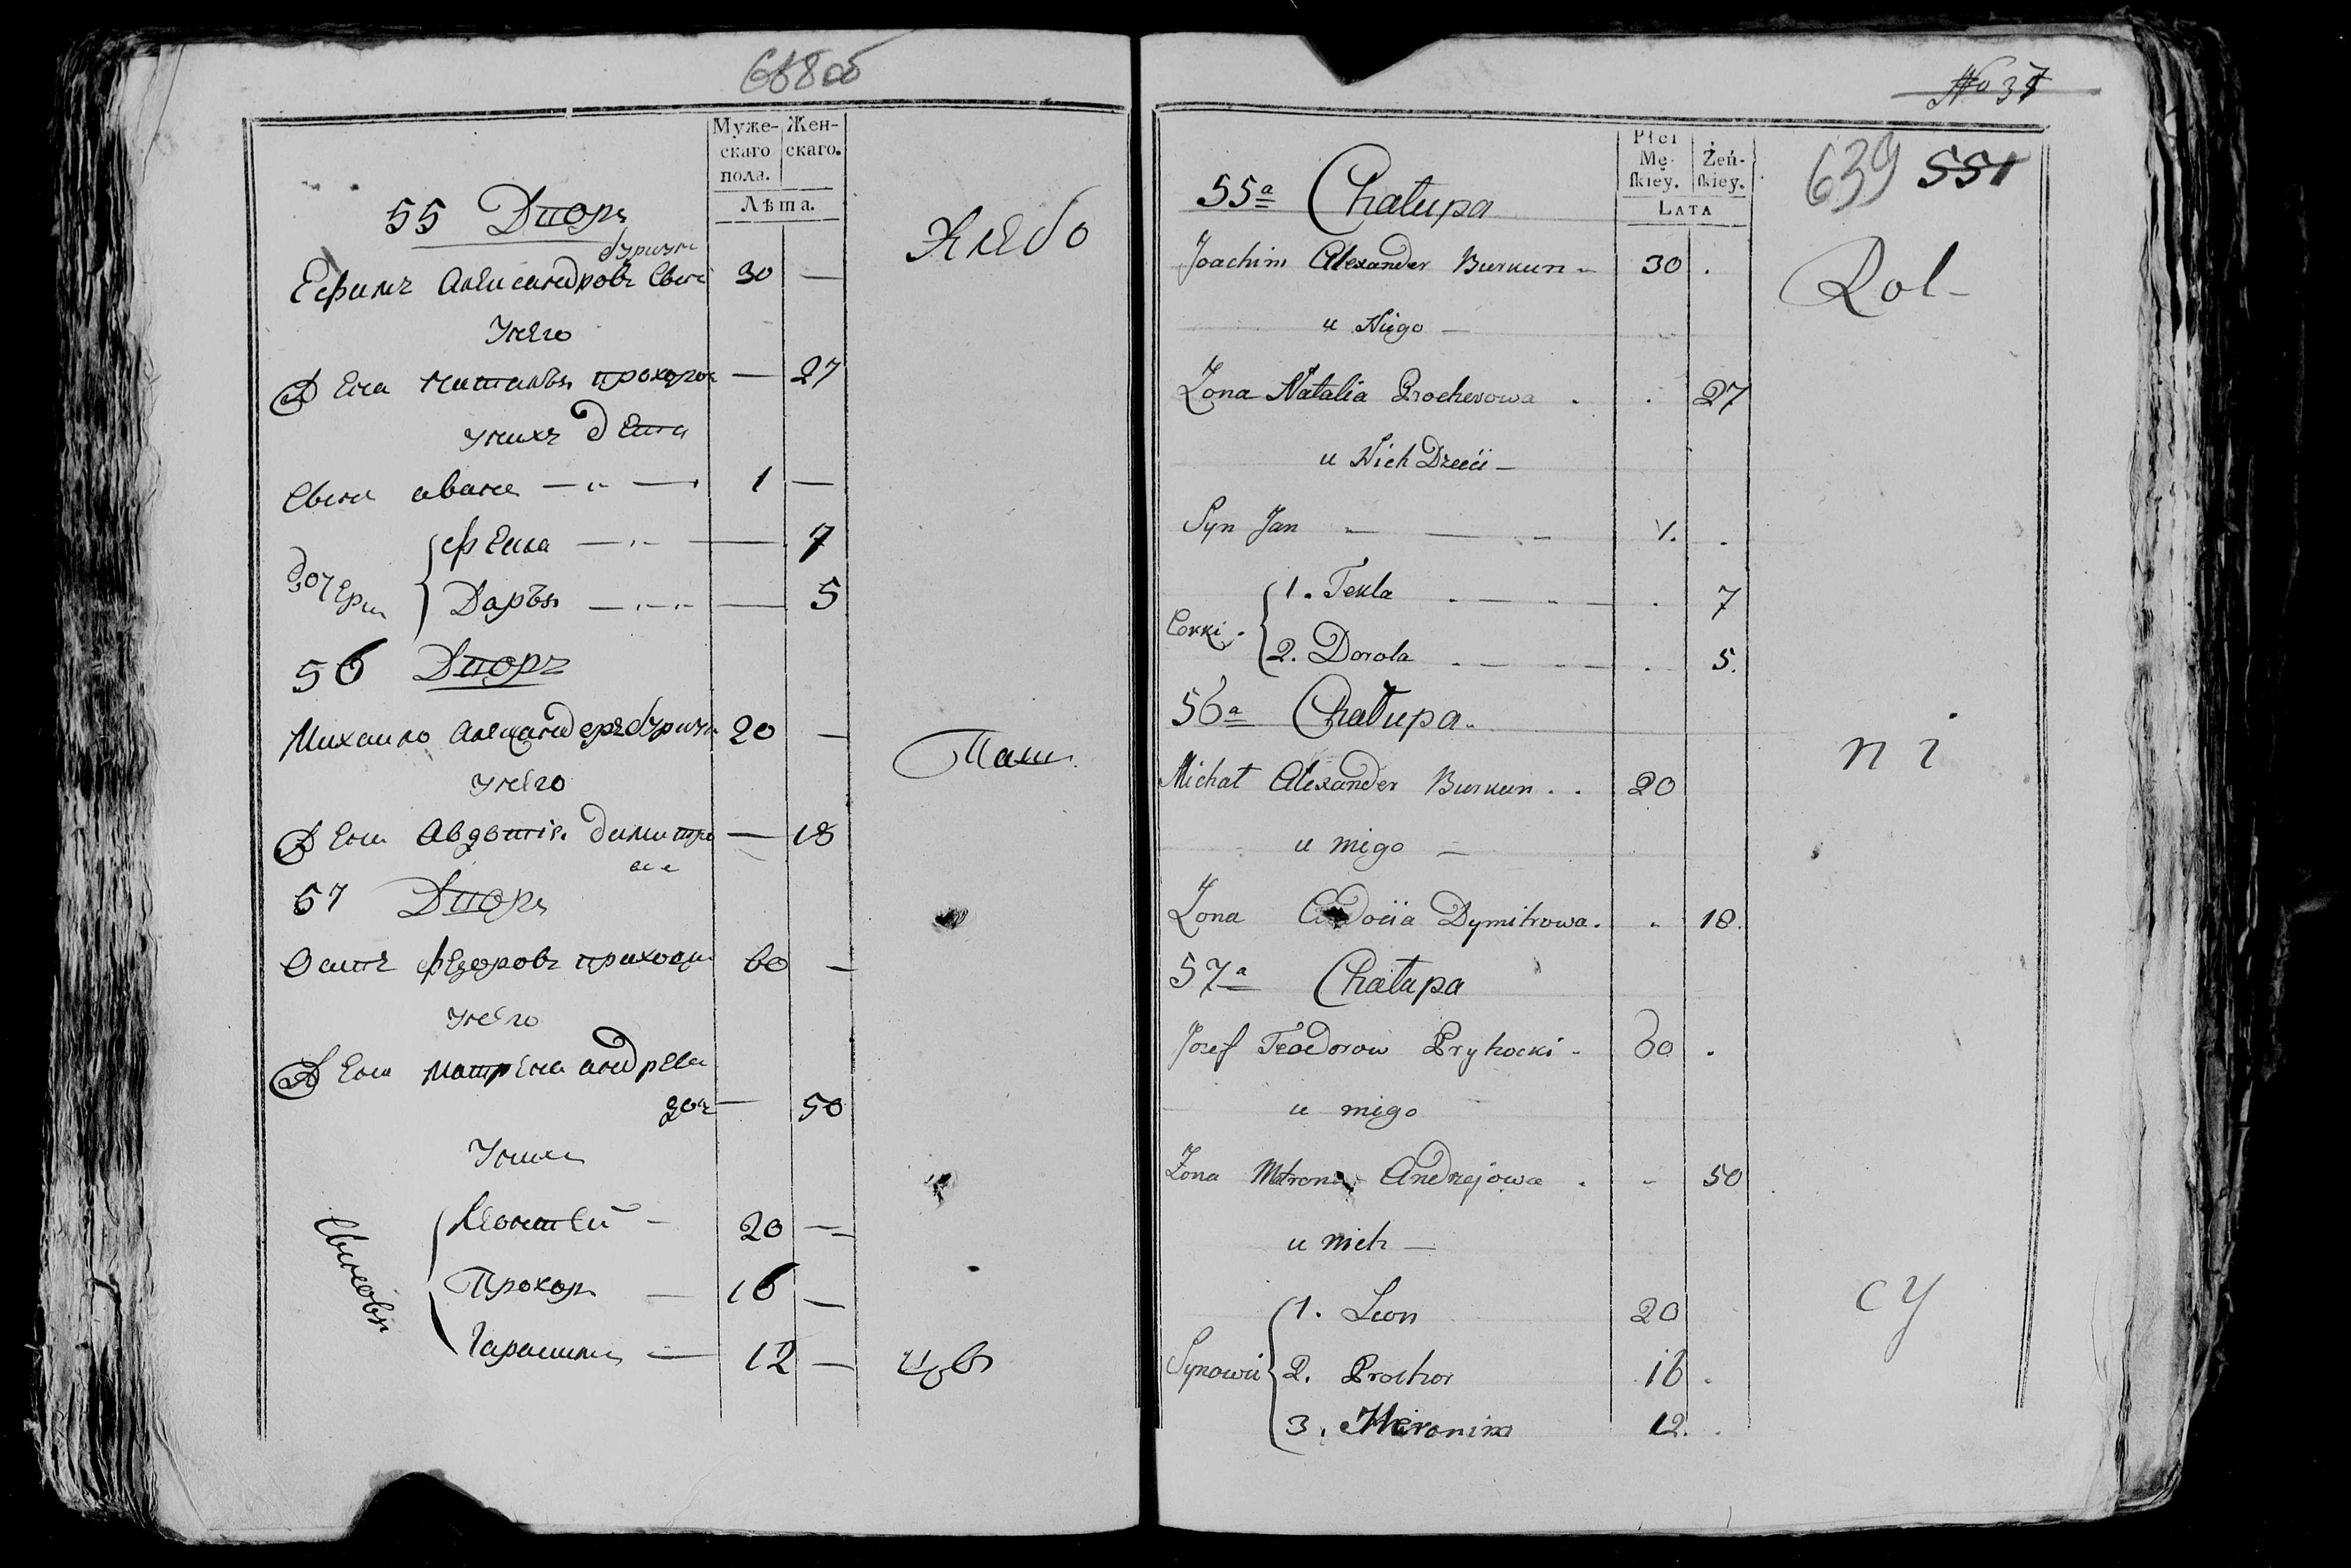 688об
Муже-
скаго
пола.
Жен-
скаго.
Лѣта.
55 Дворъ
Ефимъ Александровъ Сынъ 30 —
Хлебо
Унего
Жена Наталья прохоро — 27
Унихъ дети
Сынъ аване — 1 —
дочери
Фекла — 7
Дарья — 5
56 Дворъ
Михаило Александеръ 20 —
Паш
Унего
Жена Авдотія димитро — 18
57 Дворъ
Осипъ Федоровъ приходц 60 —
Унего
Жена матрена андреева
доч — 50
Унихъ
Сыновья
Леонтей — 20 —
Прохоръ — 16 —
Гарасимъ — 12 —
цовъ
No 37
639 551
Płci
Mę-
skiey.
Żeń-
skiey.
LATA
55a Chałupa
Joachim Alexander Burkun 30 .
Rol-
u Niego —
Zona Natalia Prochorowa . . 27
u Nich Dzieci —
Syn Jan — 1. .
Corki.
1. Tekla . 7
2. Dorota . 5.
56a Chałupa.
ni
Michał Alexander Burkun . . 20
u niego —
Zona Dymitrowa. . 18.
57a Chałupa
Jozef Teodorow Pryhocki . 60 .
u niego
Zona Matrona Andrzejowa . - 50
u nich —
Synowie
1. Leon 20
cy
2. Prochor 16 .
3. Hieronim 12. .